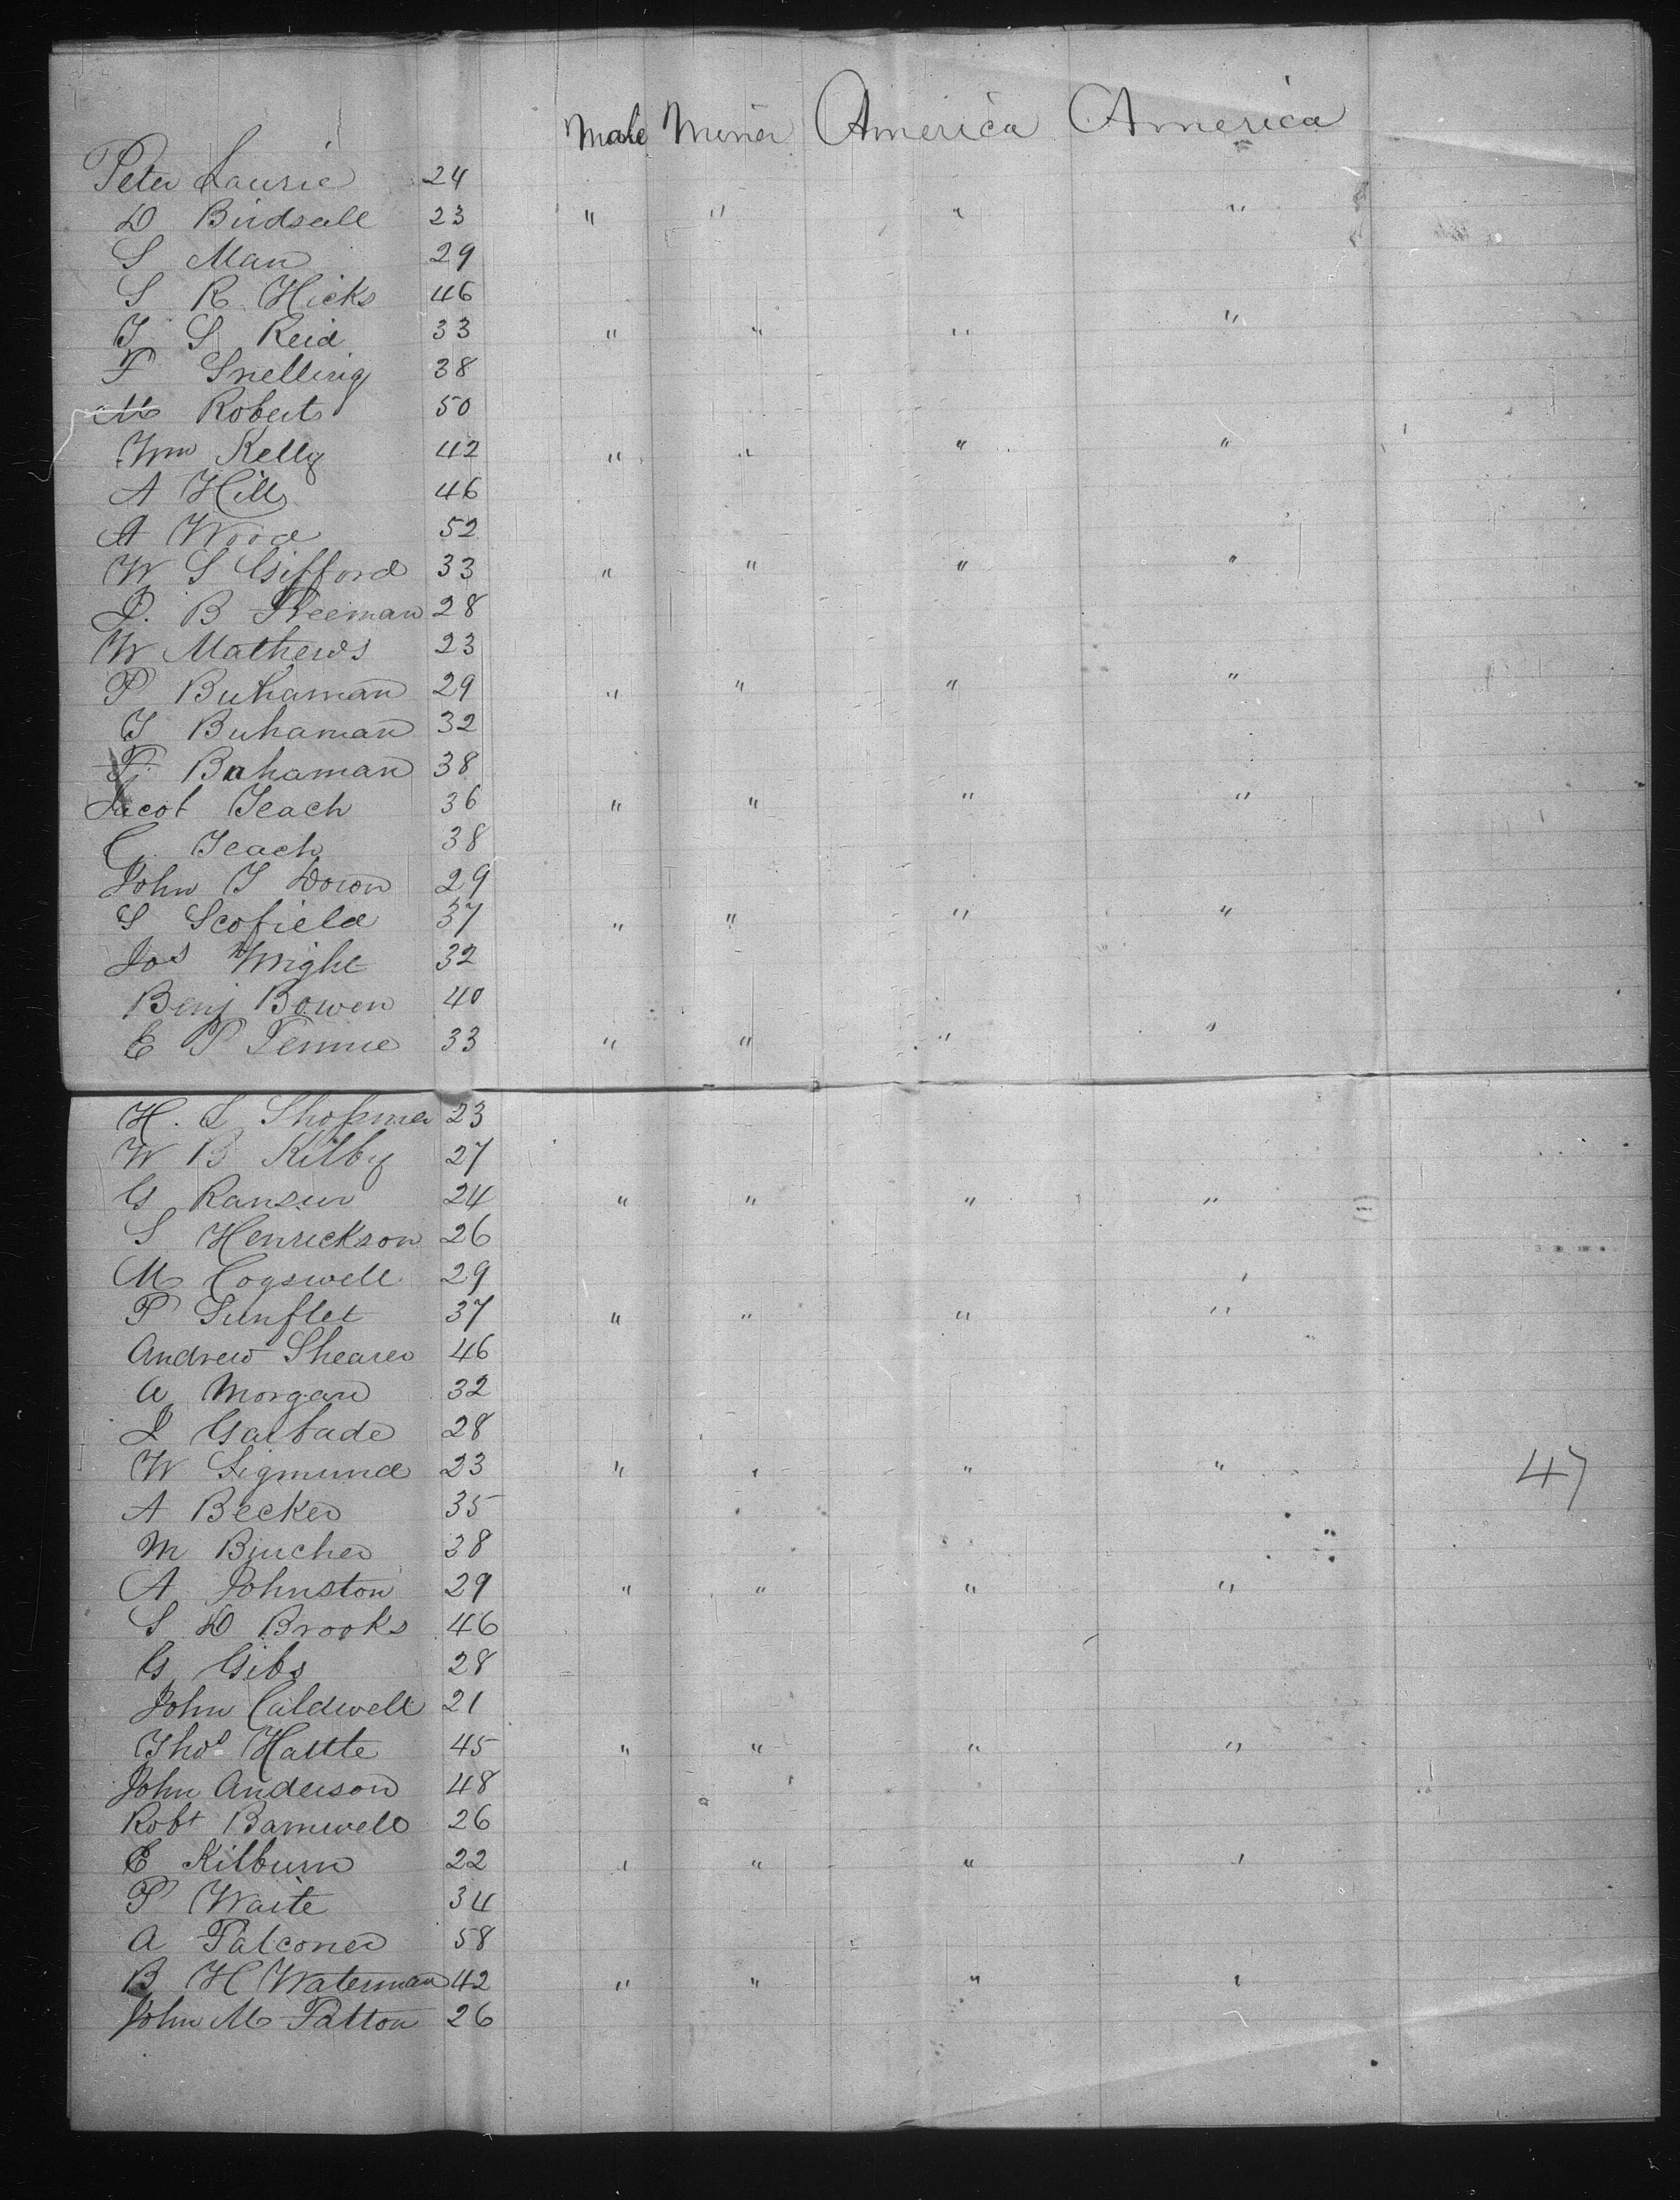 Male Miner America America
Peter Laurie 24
D Birdsall 23 " " " "
S Man 29
S R Hicks 46
T S Reid 33 " " " "
F Snelling 38
M Robert 50
Wm Kelly 42 " " " "
A Hill 46
A Wood 52
W S Gifford 33 " " " "
J. B Freeman 28
W Mathews 23
P Buhaman 29 " " " "
T Buhaman 32
F. Bahaman 38
Jacob Teach 36 " " " "
C. Teach 38
John T Down 29
S Scofield 37 " " " "
Jos Wright 32
Benj Bowen 40
E P Tennie 33 " " " "
H. L 23
W B Kilby 27
G Ranzur 24 " " " "
S Henrickson 26
M Cogswell 29
P Sunflet 37 " " " "
Andrew Shearer 46
A Morgan 32
J Garbade 28
W Sigmund 23 " " " " 47
A Becker 35
M Bincher 38
A Johnston 29 " " " "
S D Brooks 46
G Gibs 28
John Caldwell 21
Thos Hattte 45 " " " "
John Anderson 48
Robt Barnwell 26
E Kilburn 22 " " " "
P Waite 34
A Falconer 58
B H Waterman 42 " " " "
John M Patton 26